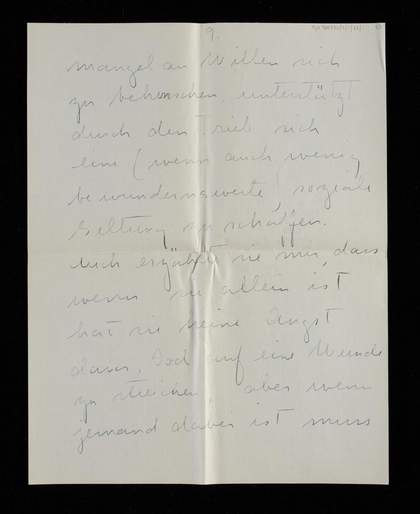 9.
mangel an Willen sich
zu beherrschen unterstützt
durch den Trieb sich
eine (wenn auch wenig
bewundernswerte) soziale
Geltung zu schaffen.
Auch erzählt sie mir, dass
wenn sie allein ist
hat sie keine Angst
davor, Jod auf eine Wunde
zu streichen, aber wenn
jemand dabei ist muss